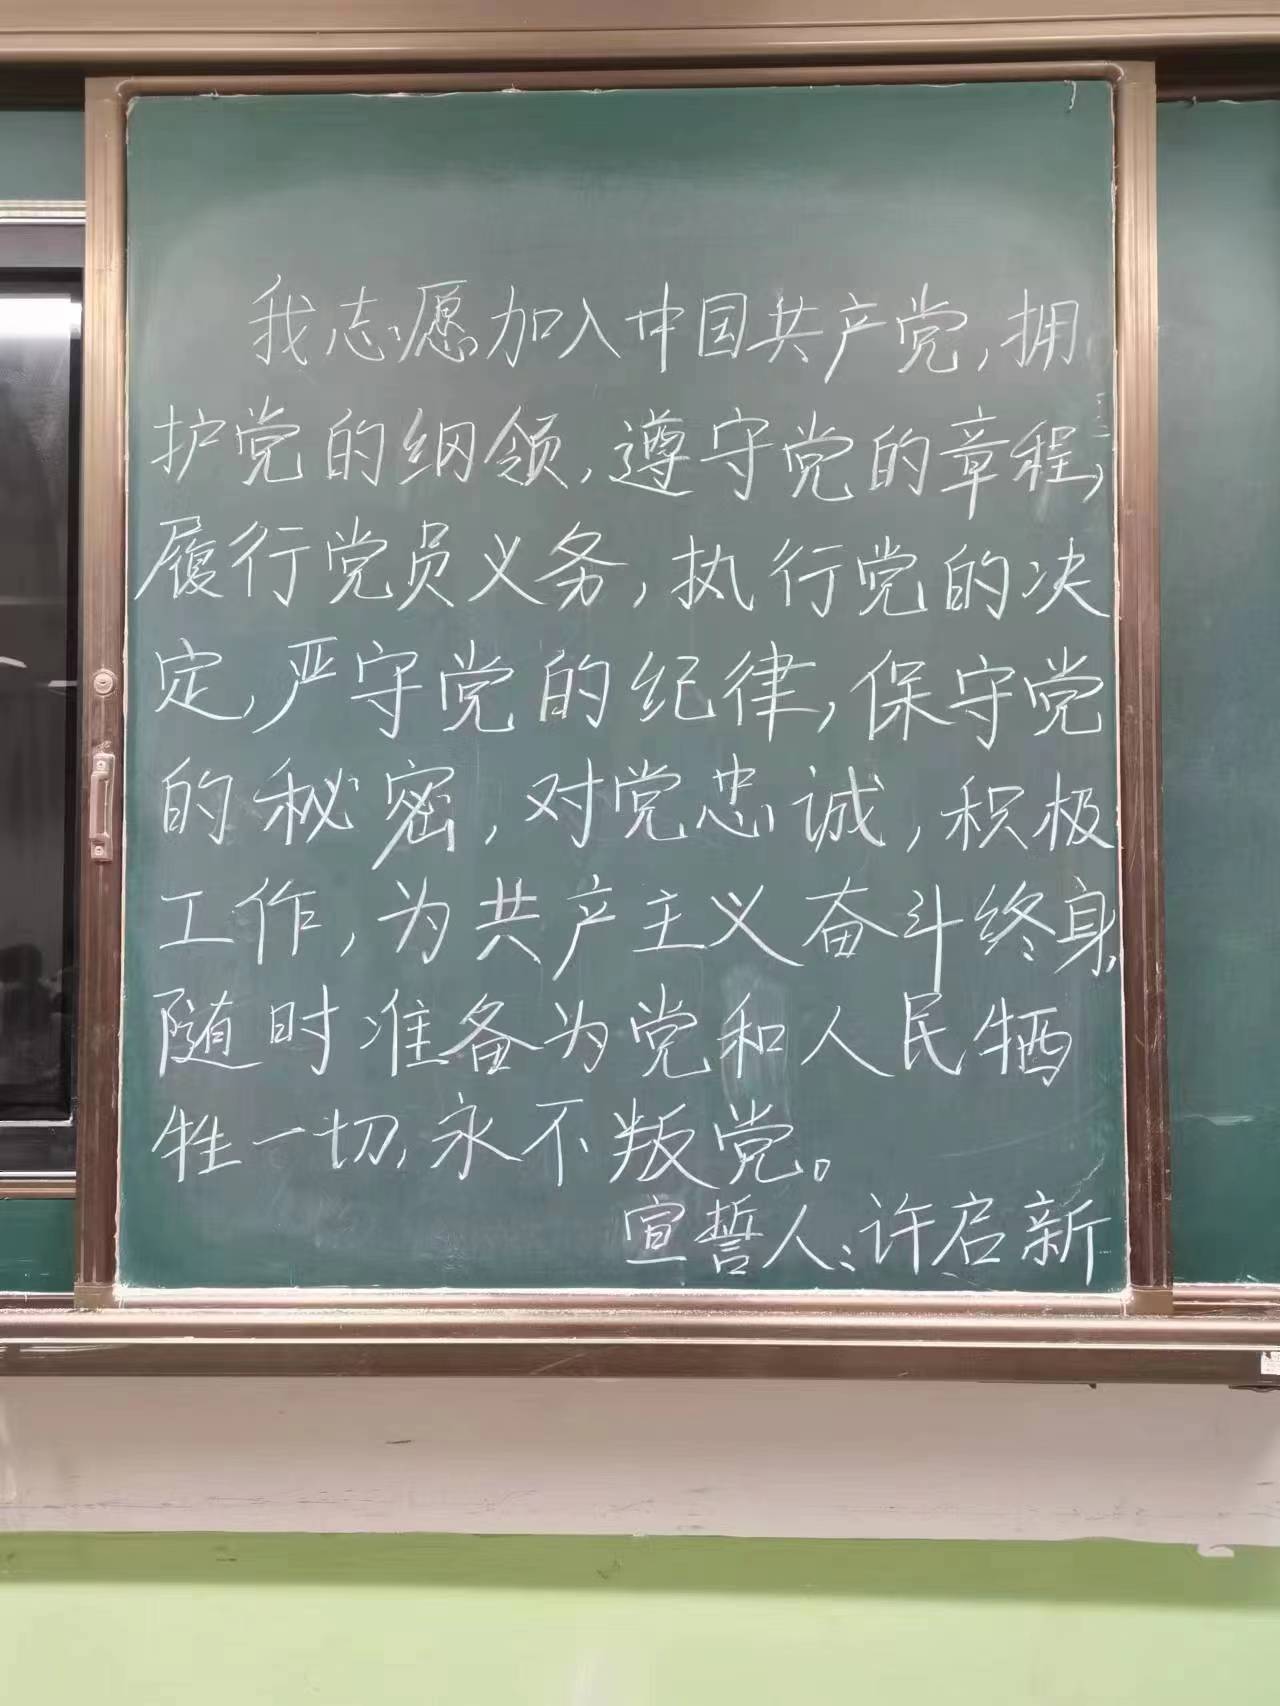 我志愿加入中国共产党,拥
护党的纲领,遵守党的章程,
履行党员义务,执行党的决
定,严守党的纪律,保守党
的秘密,对党忠诚,积极
工作,为共产主义奋斗终身,
随时准备为党和人民牺
牲一切,永不叛党。
宣誓人:许启新